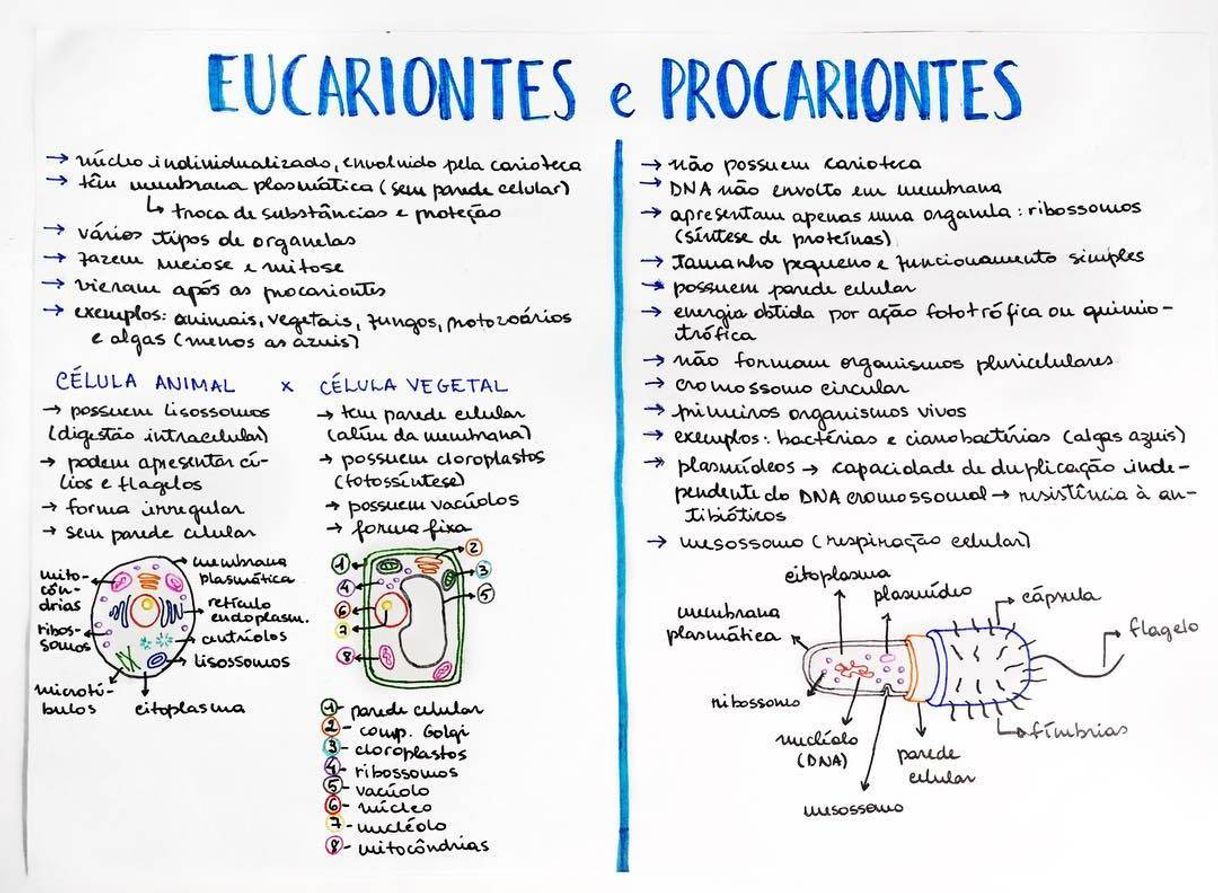 EUCARIONTES e PROCARIONTES
→ núcleo individualizado, envolvido pela carioteca
→ têm membrana plasmática (sem parede celular)
↳ troca de substâncias e proteção
→ vários tipos de organelas
→ fazem meiose e mitose
→ vieram após as procariontes
→ exemplos: animais, vegetais, fungos, protozoários
e algas (menos as azuis)
CÉLULA ANIMAL x CÉLULA VEGETAL
→ possuem lisossomos
(digestão intracelular)
→ podem apresentar cí-
lios e flagelos
→ forma irregular
→ sem parede celular
→ tem parede celular
(além da membrana)
→ possuem cloroplastos
(fotossíntese)
→ possuem vacúolos
→ forma fixa
membrana
plasmática
mito-
côn-
drias
retículo
endoplasm.
ribos-
somos
centríolos
lisossomos
microtú-
bulos
citoplasma
1
2
3
4
5
6
7
8
1- parede celular
2- comp. Golgi
3- cloroplastos
4- ribossomos
5- vacúolo
6- núcleo
7- nucléolo
8- mitocôndrias
→ não possuem carioteca
→ DNA não envolto em membrana
→ apresentam apenas uma organela: ribossomos
(síntese de proteínas)
→ tamanho pequeno e funcionamento simples
→ possuem parede celular
→ energia obtida por ação fototrófica ou quimio-
trófica
→ não formam organismos pluricelulares
→ cromossomo circular
→ primeiros organismos vivos
→ exemplos: bactérias e cianobactérias (algas azuis)
→ plasmídeos → capacidade de duplicação inde-
pendente do DNA cromossomal → resistência à an-
tibióticos
→ mesossomo (respiração celular)
citoplasma
plasmídio
cápsula
membrana
plasmática
flagelo
ribossomo
nucléolo
(DNA)
parede
celular
fímbrias
mesossomo